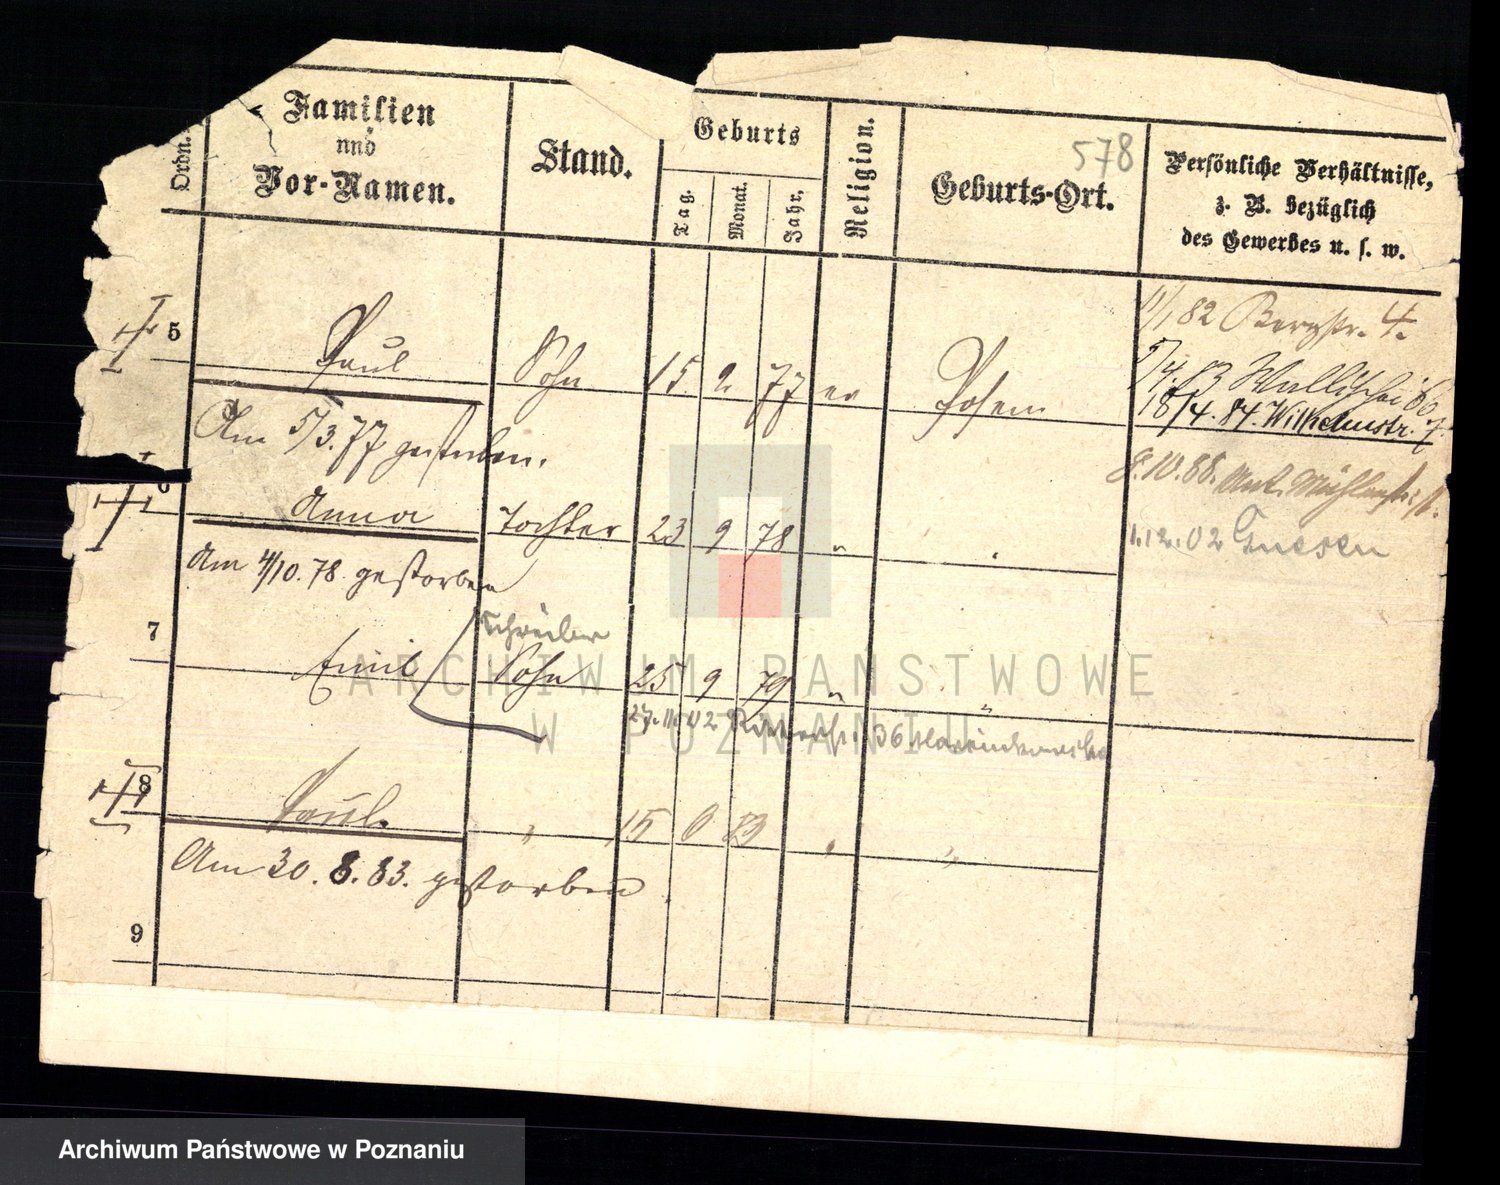 578
Ordn.
Familien
und
Vor-Namen.
Stand.
Geburts
Tag.
Monat.
Jahr.
Religion.
Geburts-Ort.
Persönliche Verhältnisse,
z. B. bezüglich
des Gewerbes u. s. w.
5 Paul Sohn 15 2 77 ev Posen
Am 5/3.77 gestorben.
6 Anna Tochter 23 9 78 " "
Am 4/10.78. gestorben
Schreiber
7 Emil Sohn 25 9 79 " "
27. 11. 02 36
8 Paul. " 15 6 83 " "
Am 30.8.83. gestorben.
9
11/1 82 Bergstr. 4.
5/4.83 Wallischei 66
18/4.84. Wilhelmstr. 7.
8.10.88. Mühlenstr.
1.12.02 Gnesen
ARCHIWUM PAŃSTWOWE
W POZNANIU
Archiwum Państwowe w Poznaniu